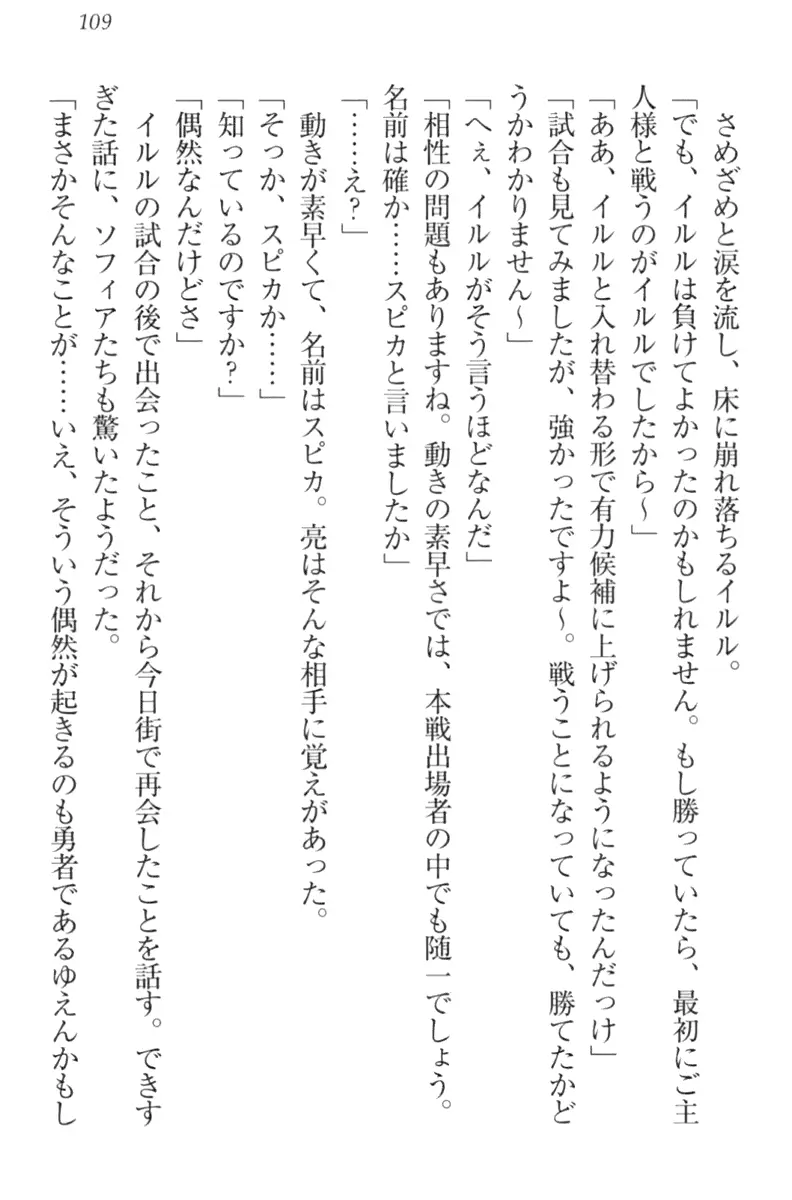 109
さめざめと涙を流し、床に崩れ落ちるイルル。
「でも、イルルは負けてよかったのかもしれません。もし勝っていたら、最初にご主
人様と戦うのがイルルでしたから～」
「ああ、イルルと入れ替わる形で有力候補に上げられるようになったんだっけ」
「試合も見てみましたが、強かったですよ～。戦うことになっていても、勝てたかど
うかわかりません～」
「へぇ、イルルがそう言うほどなんだ」
「相性の問題もありますね。動きの素早さでは、本戦出場者の中でも随一でしょう。
名前は確か……スピカと言いましたか」
「……え？」
動きが素早くて、名前はスピカ。亮はそんな相手に覚えがあった。
「そっか、スピカか……」
「知っているのですか？」
「偶然なんだけどさ」
イルルの試合の後で出会ったこと、それから今日街で再会したことを話す。できす
ぎた話に、ソフィアたちも驚いたようだった。
「まさかそんなことが……いえ、そういう偶然が起きるのも勇者であるゆえんかもし